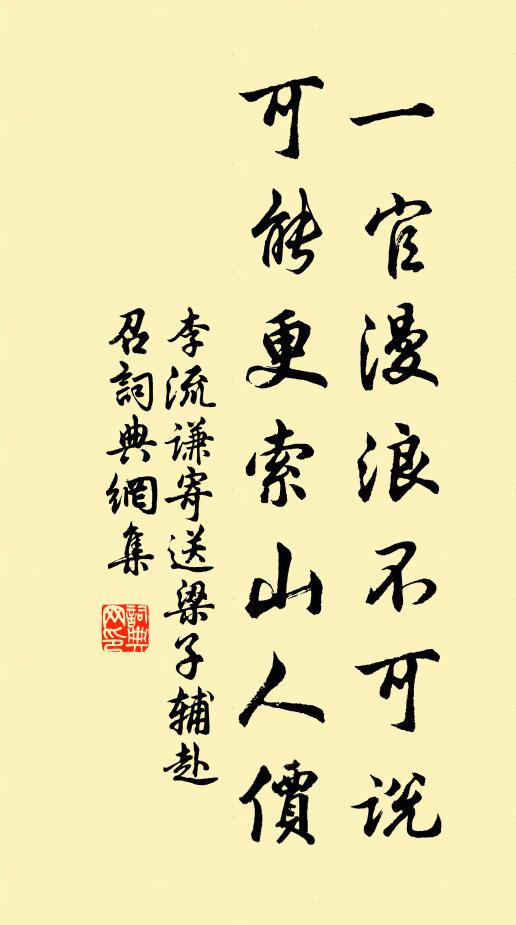 一官漫浪不可説
可能更索山人價
李流謙寄送梁子辅赴
召詞典網集
詞典网印